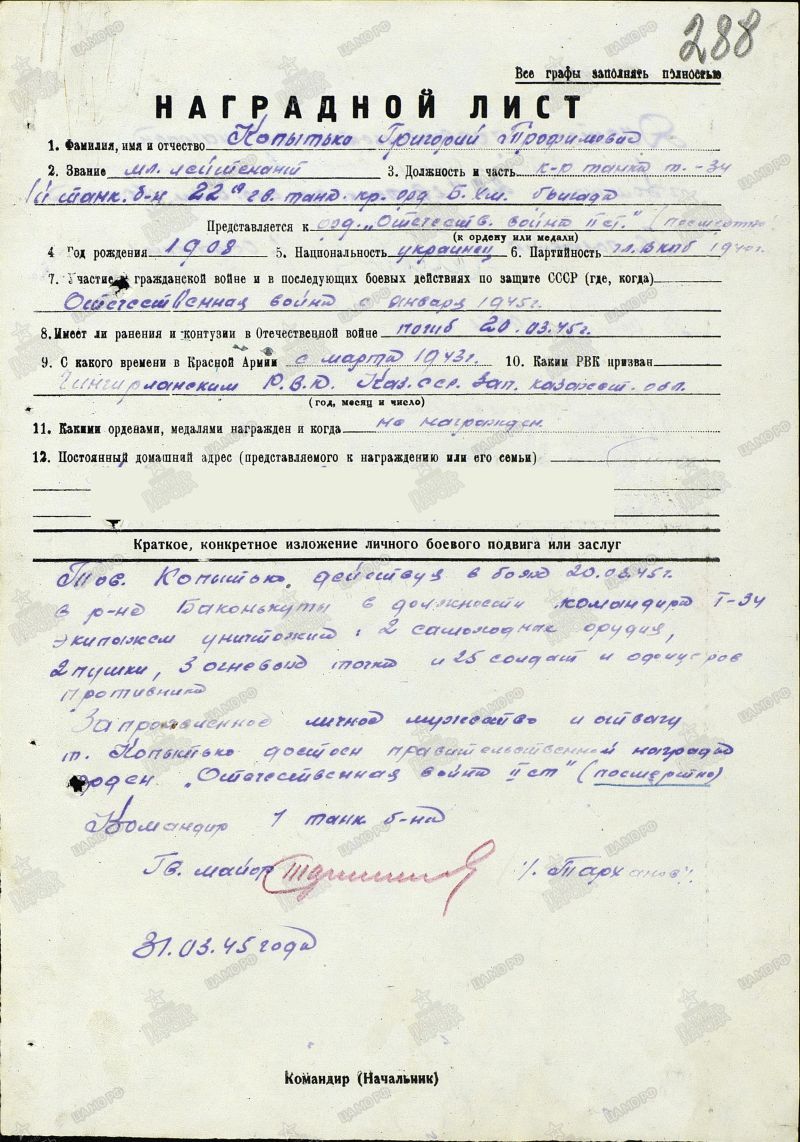 288
Все графы заполнять полностью
НАГРАДНОЙ ЛИСТ
1. Фамилия, имя и отчество Копытько Григорий Трофимович
2. Звание мл. лейтенант 3. Должность и часть к-р танка т-34
1 танк. б-н 22 гв. танк. кр. орд. Б. Хм. бригада
Представляется к орд. „Отечеств. война II ст." (посмертно)
(к ордену или медали)
4 Год рождения 1908 5. Национальность украинец 6. Партийность чл. ВКПб 1940г.
7. Участие в гражданской войне и в последующих боевых действиях по защите СССР (где, когда)
Отечественная война с января 1945г.
8. Имеет ли ранения и контузии в Отечественной войне погиб 20.03.45г.
9. С какого времени в Красной Армии с марта 1943г. 10. Каким РВК призван
Чингирланским Р.В.К. Каз.сср. Зап. казахст. обл.
(год, месяц и число)
11. Какими орденами, медалями награжден и когда не награжден.
12. Постоянный домашний адрес (представляемого к награждению или его семьи)
Краткое, конкретное изложение личного боевого подвига или заслуг
Тов. Копытько, действуя в боях 20.03.45г.
в р-не Баконькуты в должности командира Т-34
экипажем уничтожил: 2 самоходных орудия,
2 пушки, 3 огневых точки и 25 солдат и офицеров
противника
За проявленное личное мужество и отвагу
т. Копытько достоен правительственной награды
орден „Отечественная война II ст" (посмертно)
Командир 1 танк. б-на
Гв. майор /Тарханов/
31.03.45 года
Командир (Начальник)